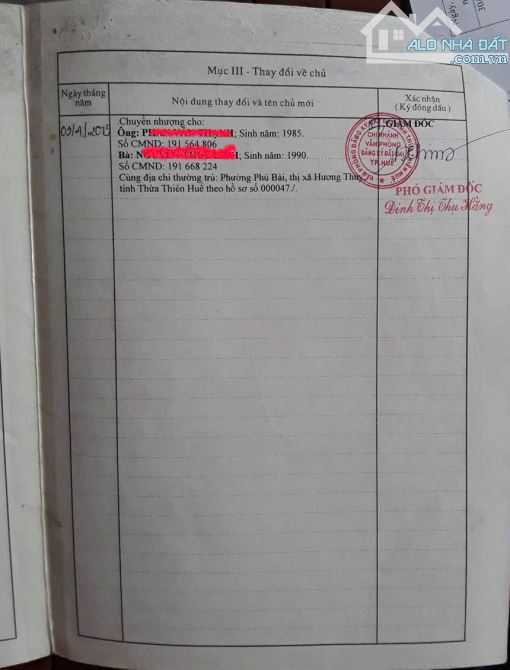 ALO NHÀ ĐẤT
.com.vn
Mục III - Thay đổi về chủ
Ngày tháng năm
Nội dung thay đổi và tên chủ mới
Xác nhận
(Ký đóng dấu)
Chuyển nhượng cho:
Ông: Sinh năm: 1985.
Số CMND: 191 564 806
Bà: Sinh năm: 1990.
Số CMND: 191 668 224
Cùng địa chỉ thường trú: Phường Phú Bài, thị xã Hương Thủy,
tỉnh Thừa Thiên Huế theo hồ sơ số 000047./.
GIÁM ĐỐC
CHI NHÁNH
VĂN PHÒNG
ĐĂNG KÝ ĐẤT ĐAI
TP. HUẾ
PHÓ GIÁM ĐỐC
Đinh Thị Thu Hằng